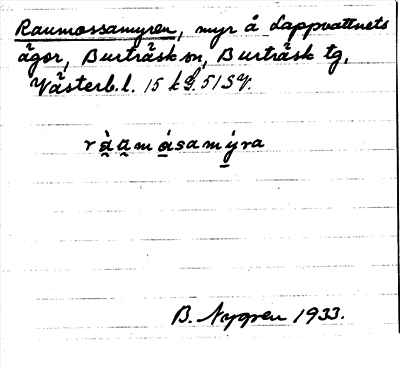 Raumossamyren, myr å Lappvattnets
ägor, Burträsk sn, Burträsk tg,
Västerb. l. 15 k G. 51 SV.
r à̰ a̰ m ó̠ s a m ý̠ r a
B. Nygren 1933.